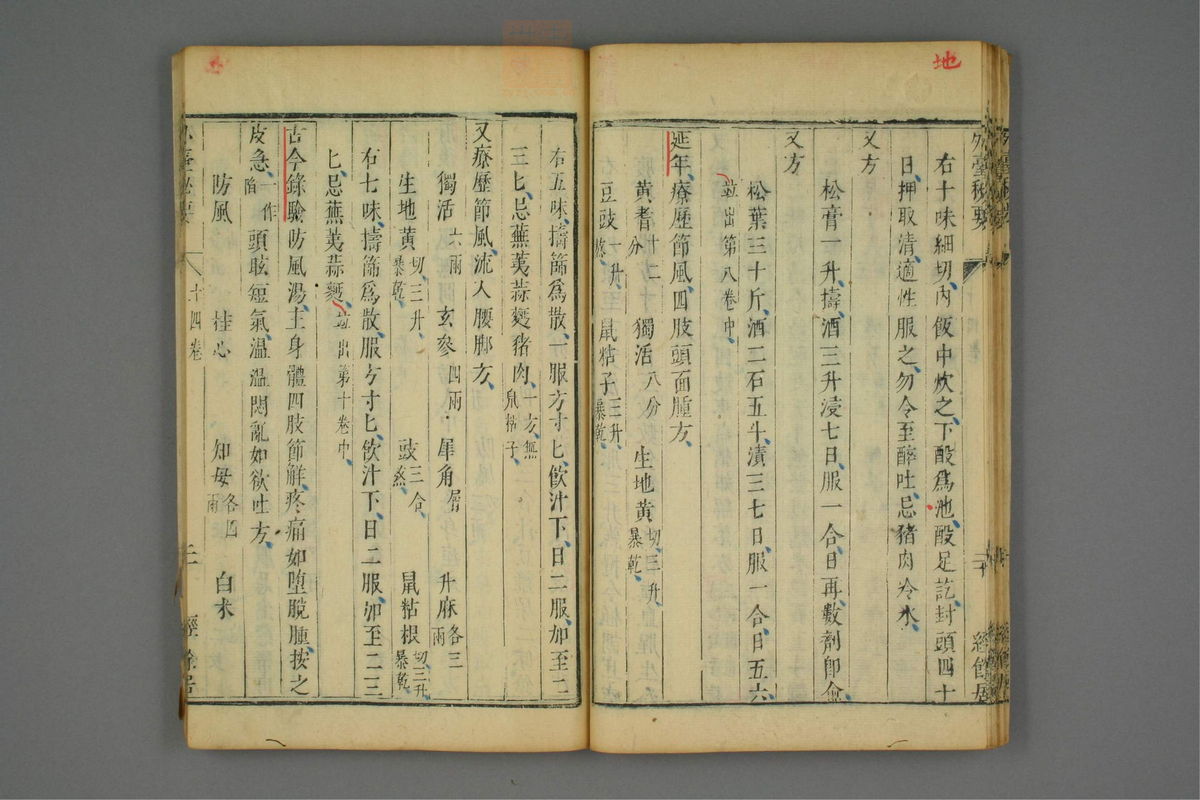 地
外臺秘要
二十
經餘居
右十味細切內飯中炊之下酘爲池酘足訖封頭四十
日押取清適性服之勿令至醉吐忌豬肉冷水
又方
松膏一升擣酒三升浸七日服一合日再數劑卽愈
又方
松葉三十斤酒二石五斗漬三七日服一合日五六
並出第八卷中
延年療歷節風四肢頭面腫方
黃耆十二分 獨活八分 生地黃切三升暴乾
豆豉一升熬 鼠粘子三升暴乾
右五味擣篩爲散一服方寸匕飲汁下日二服加至二
三匕忌蕪荑蒜麫豬肉一方無鼠粘子
又療歷節風流入腰脚方
獨活六兩 玄參四兩 犀角屑 升麻各三兩
生地黃切三升暴乾 豉三合熬 鼠粘根切三升暴乾
右七味擣篩爲散服方寸匕飲汁下日二服加至二三
匕忌蕪荑蒜麫並出第十卷中
古今錄驗防風湯主身體四肢節解疼痛如墮脫腫按之
皮急一作陷頭眩短氣溫溫悶亂如欲吐方
防風 桂心 知母各四兩 白朮
外臺秘要
十四卷
經餘居